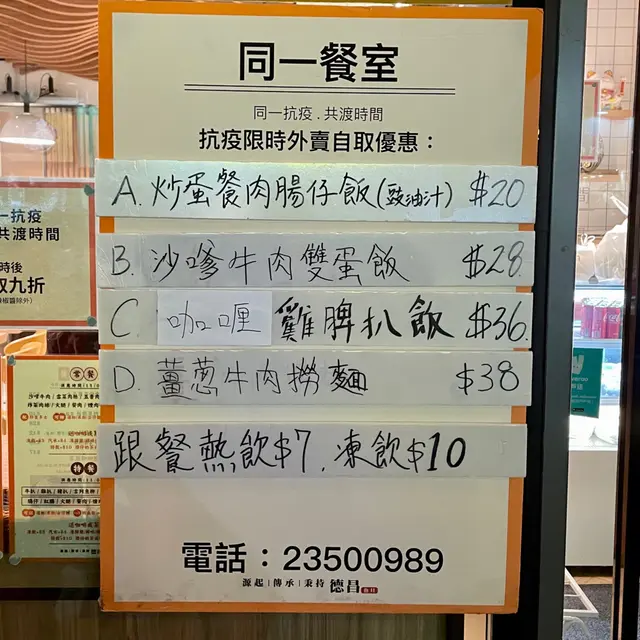 同一餐室
同一抗疫．共渡時間
抗疫限時外賣自取優惠：
A. 炒蛋餐肉腸仔飯(豉油汁) $20
B. 沙嗲牛肉雙蛋飯 $28
C. 咖喱雞脾扒飯 $36
D. 薑葱牛肉撈麵 $38
跟餐熱飲$7, 凍飲$10
電話：23500989
源起|傳承|秉持 德昌
一抗疫
共渡時間
時後
九折
常餐
特餐